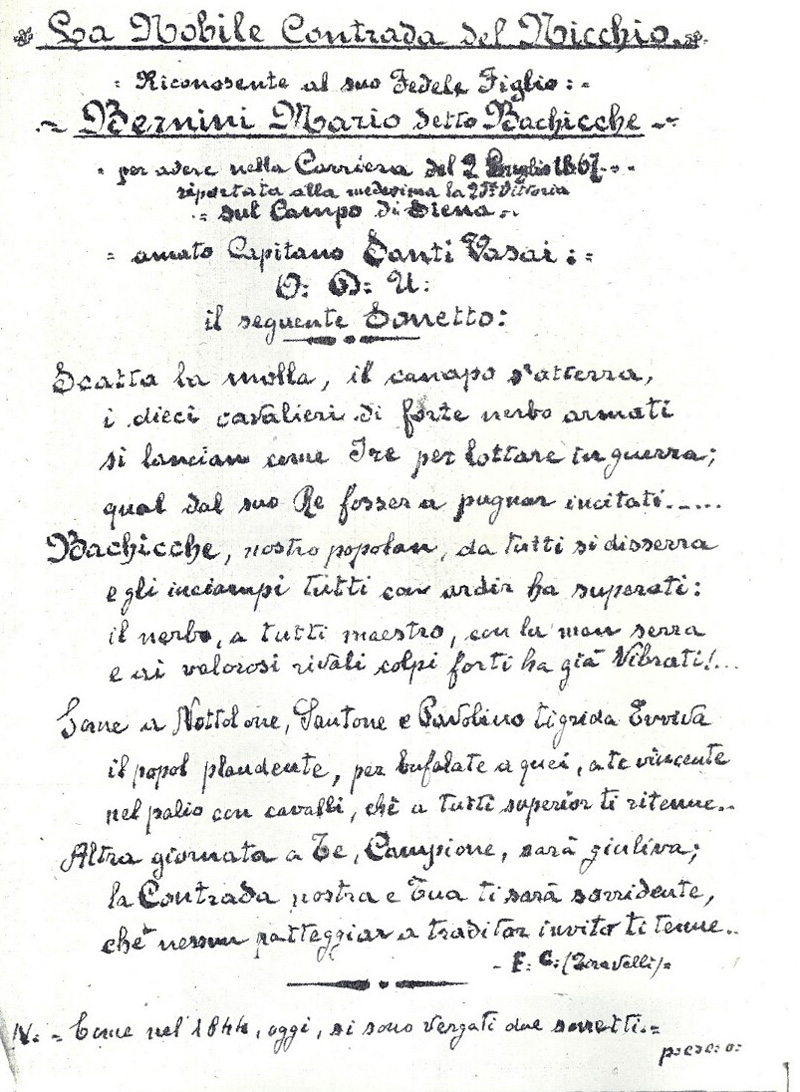 La Nobile Contrada del Nicchio.
= Riconosente al suo Fedele Figlio: =
~ Bernini Mario detto Bachicche ~
per avere nella Carriera del 2 Luglio 1867
riportata alla medesima la 23ª Vittoria
sul Campo di Siena.
= amato Capitano Santi Vasai: =
O: D: U:
il seguente Sonetto:
Scatta la molla, il canapo s'atterra,
i dieci cavalieri di forte nerbo armati
si lancian come Ire per lottare in guerra;
qual dal suo Re fosser a pugnar incitati......
Bachicche, nostro popolan, da tutti si disserra
e gli inciampi tutti con ardir ha superati:
il nerbo, a tutti maestro, con la man serra
e ai valorosi rivali colpi forti ha già Vibrati!...
Come a Nottolone, Santone e Pavolino ti grida Evviva
il popol plaudente, per bufalate a quei, a te vincente
nel palio con cavalli, chè a tutti superior ti ritenne..
Altra giornata a Te, Campione, sarà giuliva;
la Contrada nostra e Tua ti sarà sorridente,
chè nessun patteggiar a traditor invito ti tenne..
- F. C.
N. = Come nel 1844, oggi, si sono vergati due sonetti. =